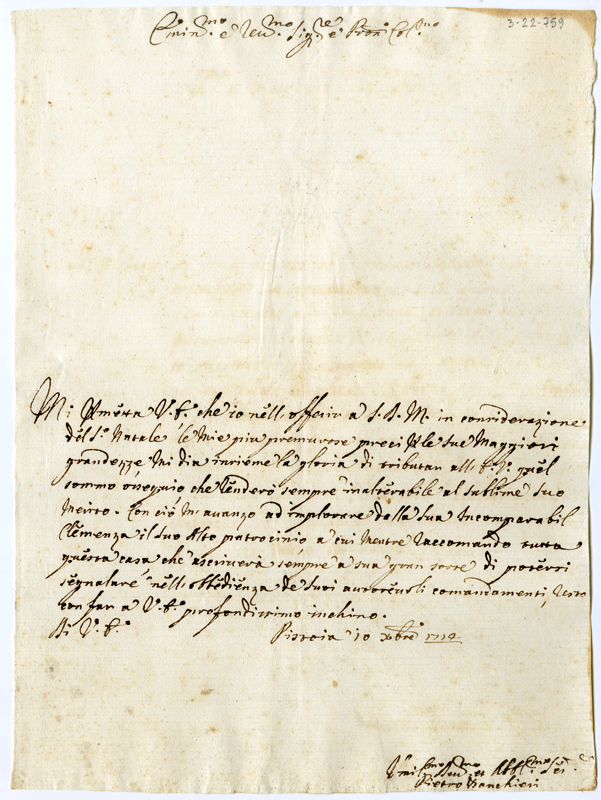 3-22-759
Emin.mo e Rev.mo Sig.re e Pron Col.mo
Mi permetta V. E. che io nell'offerir a S. D. M. in considerazione
del S.o Natale le mie piu premurose preci p le sue Maggiori
grandezze, mi dia insieme la gloria di tributar all' E. V. quel
sommo ossequio che renderò sempre inalterabile al sublime suo
Merito. Con ciò m'avanzo ad implorare dalla sua Incomparabil
Clemenza il suo Alto patrocinio, a cui mentre raccomando tutta
questa casa che ascriverà sempre a sua gran sorte di potersi
segnalare nell' obbedienza de suoi autorevoli comandamenti, resto
con far a V. E. profondissimo inchino.
Di V. E.
Pistoia 10 Xbre
Umil.mo Dev.mo et Obbl.mo Ser.
Pietro Banchieri